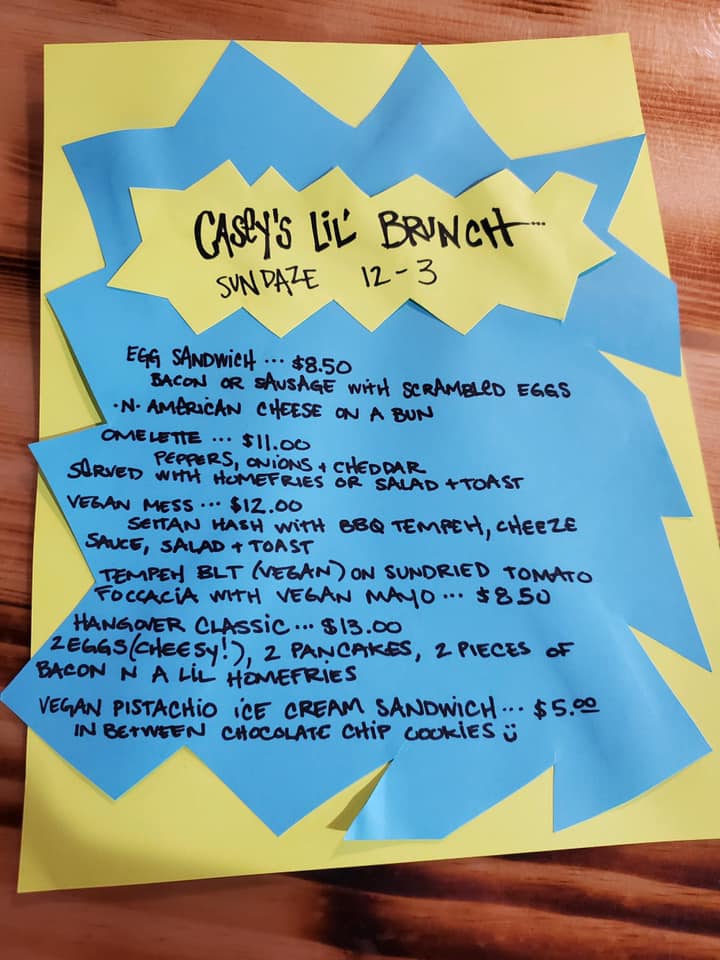 CASEY'S LIL' BRUNCH...
SUNDAZE 12-3
EGG SANDWICH ... $8.50
BACON OR SAUSAGE WITH SCRAMBLED EGGS
·N· AMERICAN CHEESE ON A BUN
OMELETTE ... $11.00
PEPPERS, ONIONS + CHEDDAR
SERVED WITH HOMEFRIES OR SALAD + TOAST
VEGAN MESS ... $12.00
SEITAN HASH WITH BBQ TEMPEH, CHEEZE
SAUCE, SALAD + TOAST
TEMPEH BLT (VEGAN) ON SUNDRIED TOMATO
FOCCACIA WITH VEGAN MAYO ... $8.50
HANGOVER CLASSIC ... $13.00
2 EGGS (CHEESY!), 2 PANCAKES, 2 PIECES OF
BACON N A LIL HOMEFRIES
VEGAN PISTACHIO ICE CREAM SANDWICH ... $5.00
IN BETWEEN CHOCOLATE CHIP COOKIES Ü